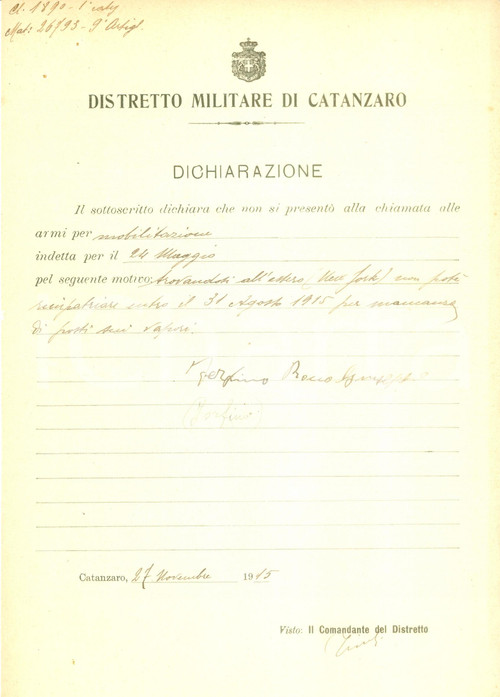 Cl. 1890 - 1ª catg
Mat: 26793 - 9° Artigl.
DISTRETTO MILITARE DI CATANZARO
DICHIARAZIONE
Il sottoscritto dichiara che non si presentò alla chiamata alle
armi per mobilitazione
indetta per il 24 Maggio
pel seguente motivo: trovandosi all'estero (New York) non potè
rimpatriare entro il 31 Agosto 1915 per mancanza
di posti sui vapori.
Rocco
Catanzaro, 27 Novembre 1915
Visto: Il Comandante del Distretto